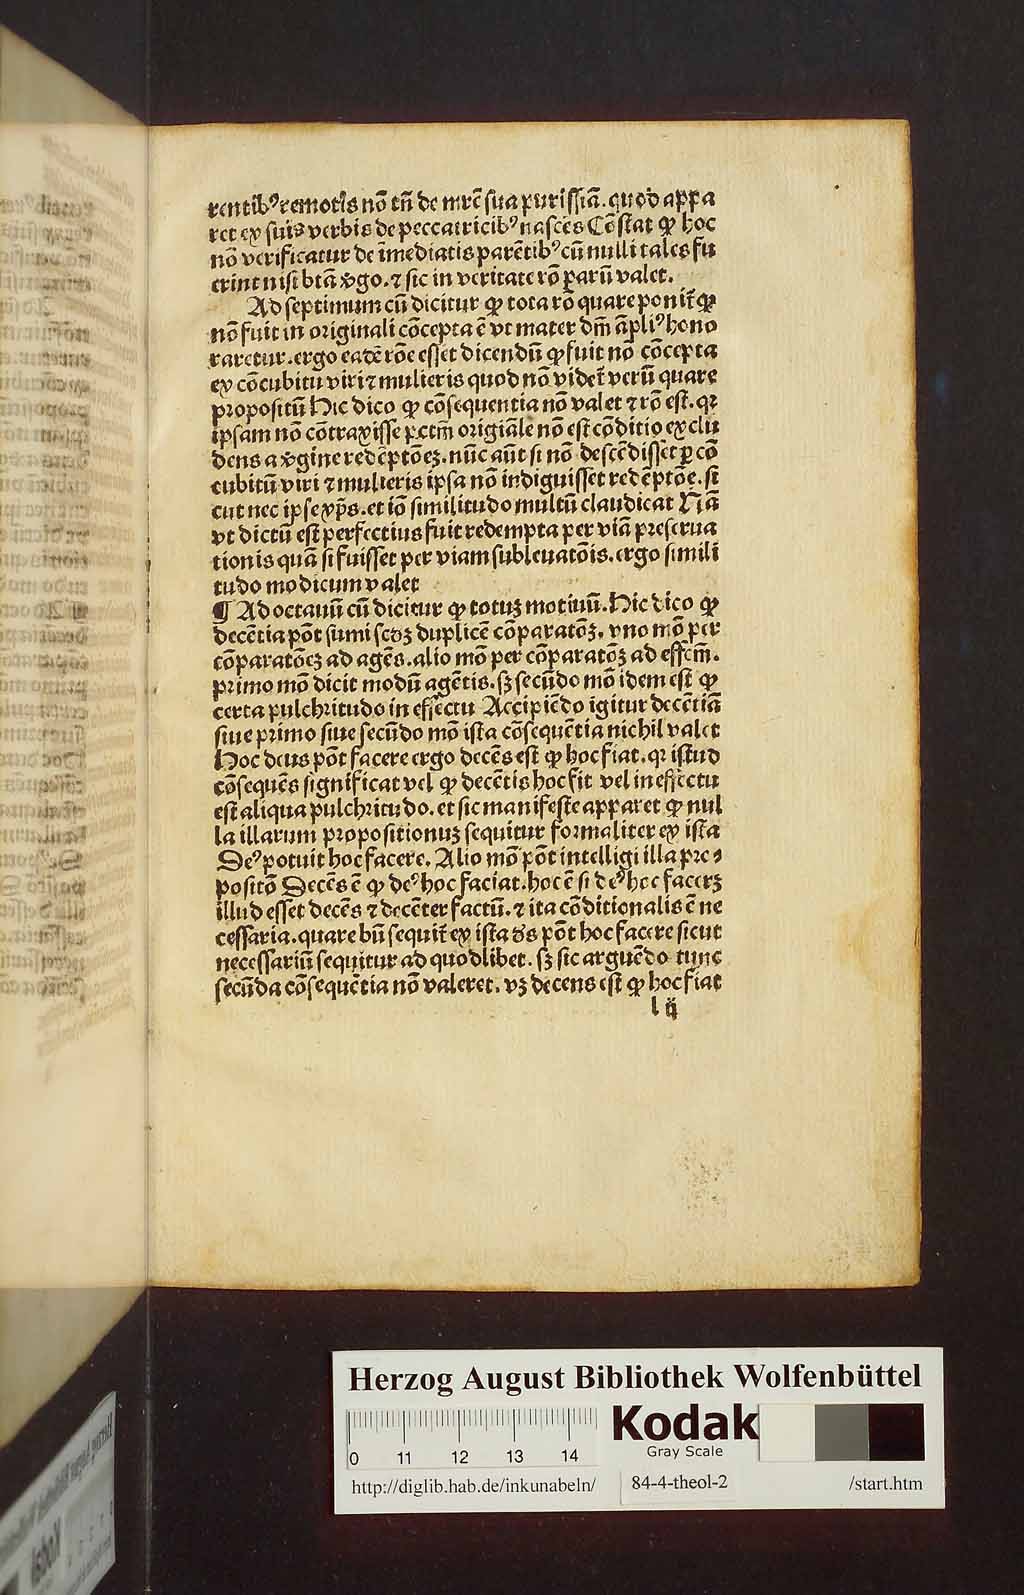 rentibꝰ remotis nō tn̄ de mr̄e sua purissiā. quod appa
ret ex suis verbis de peccatricibꝰ nascēs Cōstat ꝙ hoc
nō verificatur de īmediatis parētibꝰ cū nulli tales fu
erint nisi btā v̄go. ⁊ sic in veritate rō parū valet.
Ad septimum cū dicitur ꝙ tota rō quare ponit̄ ꝙ
nō fuit in originali cōcepta ē vt mater dn̄i āpliꝰ hono
raretur. ergo eadē rōe esset dicendū ꝙ fuit nō cōcepta
ex cōcubitu viri ⁊ mulieris quod nō videt̄ verū quare
propositū Hic dico ꝙ cōsequentia nō valet ⁊ rō est. qꝛ
ipsam nō cōtraxisse pctm̄ originale nō est cōditio exclu
dens a v̄gine redēptōeꝫ. nūc aūt si nō descēdisset ꝑ cō
cubitū viri ⁊ mulieris ipsa nō indiguisset redēptōe. si
cut nec ipse xp̄s. et iō similitudo multū claudicat Nā
vt dictū est perfectius fuit redempta per viā preserua
tionis quā si fuisset per viam subleuatōis. ergo simili
tudo modicum valet
¶ Ad octauū cū dicitur ꝙ totuꝫ motiuū. Hic dico ꝙ
decētia pōt sumi scd̄ꝫ duplicē cōparatōꝫ. vno mō per
cōparatōeꝫ ad agēs. alio mō per cōparatōꝫ ad effcm̄.
primo mō dicit modū agētis. sꝫ secūdo mō idem est ꝙ
certa pulchritudo in effectu Accipiēdo igitur decētiā
siue primo siue secūdo mō ista cōsequētia nichil valet
Hoc deus pōt facere ergo decēs est ꝙ hoc fiat. qꝛ istud
cōsequēs significat vel ꝙ decētis hoc fit vel in effectu
est aliqua pulchritudo. et sic manifeste apparet ꝙ nul
la illarum propositionuꝫ sequitur formaliter ex ista
Deꝰ potuit hoc facere. Alio mō pōt intelligi illa pro⸗
positō Decēs ē ꝙ deꝰ hoc faciat. hoc ē si deꝰ hoc facerꝫ
illud esset decēs ⁊ decēter factū. ⁊ ita cōditionalis ē ne
cessaria. quare bn̄ sequit̄ ex ista d̄s pōt hoc facere sicut
necessariū sequitur ad quodlibet. sꝫ sic arguēdo tunc
secūda cōsequētia nō valeret. vꝫ decens est ꝙ hoc fiat
l ij
Herzog August Bibliothek Wolfenbüttel
0 11 12 13 14
Kodak
Gray Scale
http://diglib.hab.de/inkunabeln/ 84-4-theol-2 /start.htm